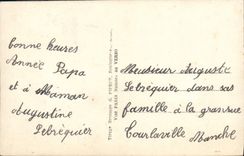 bonne heures
Année Papa
et à Maman
Augustine
Lebréquier
AU VERSO
Monsieur Auguste
Lebréquier dans sa
famille à la granrue
Tourlaville Manche